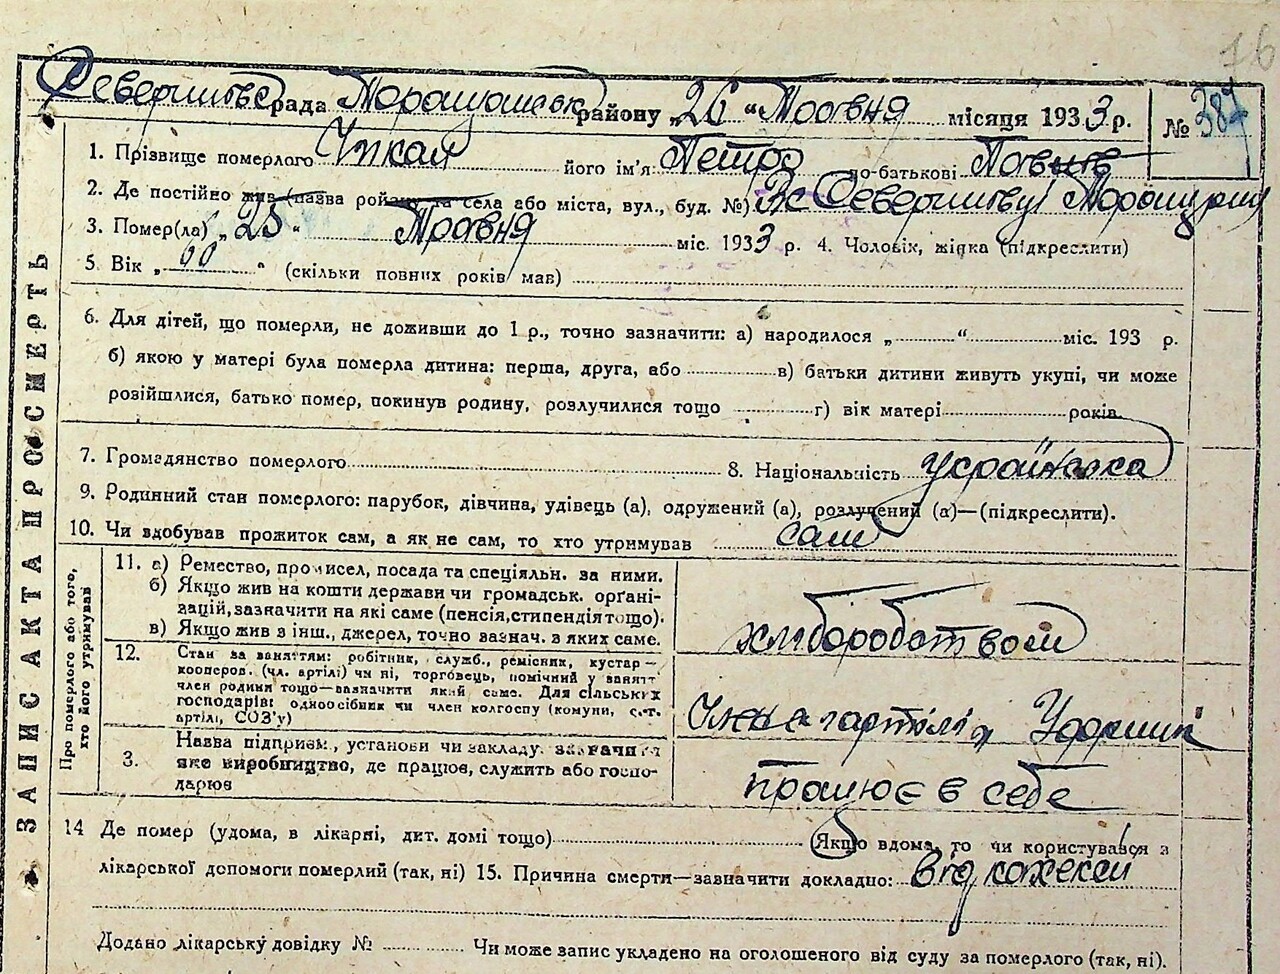 76
рада районy „26“ Травня місяця 1933 р. № 387
1. Прізвище померлого його ім'я Петро по-батькові
2. Де постійно жив (назва району та села або міста, вул., буд. №)
3. Помер(ла) „25“ Травня міс. 1933 р. 4. Чоловік, жінка (підкреслити)
5. Вік „60“ (скільки повних років мав)
6. Для дітей, що померли, не доживши до 1 р., точно зазначити: а) народилося „ “ міс. 193 р.
б) якою у матері була померла дитина: перша, друга, або в) батьки дитини живуть укупі, чи може
розійшлися, батько помер, покинув родину, розлучилися тощо г) вік матері років
7. Громадянство померлого 8. Національність українка
9. Родинний стан померлого: парубок, дівчина, удівець (а), одружений (а), розлучений (а)—(підкреслити).
10. Чи здобував прожиток сам, а як не сам, то хто утримував сам
ЗАПИС АКТА ПРО СМЕРТЬ
Про померлого або того, хто його утримував
11. а) Ремество, промисел, посада та спеціяльн. за ними.
б) Якщо жив на кошти держави чи громадськ. орґані-
зацій, зазначити на які саме (пенсія, стипендія тощо).
в) Якщо жив з інш., джерел, точно зазнач. з яких саме.
хліборобством
12. Стан за заняттям: робітник, служб., ремісник, кустар—
кооперов. (чл. артілі) чи ні, торговець, помічний у занятт
член родини тощо—зазначити який саме. Для сільських
господарів: одноосібник чи член колгоспу (комуни, с.-г.
артілі, СОЗ'у)
3. Назва підприєм., установи чи закладу. зазначити
яке виробництво, де працює, служить або госпо-
дарює
працює в себе
14 Де помер (удома, в лікарні, дит. домі тощо) Якщо вдома, то чи користувався з
лікарської допомоги померлий (так, ні) 15. Причина смерти—зазначити докладно: від кахексії
Додано лікарську довідку № Чи може запис укладено на оголошеного від суду за померлого (так, ні).